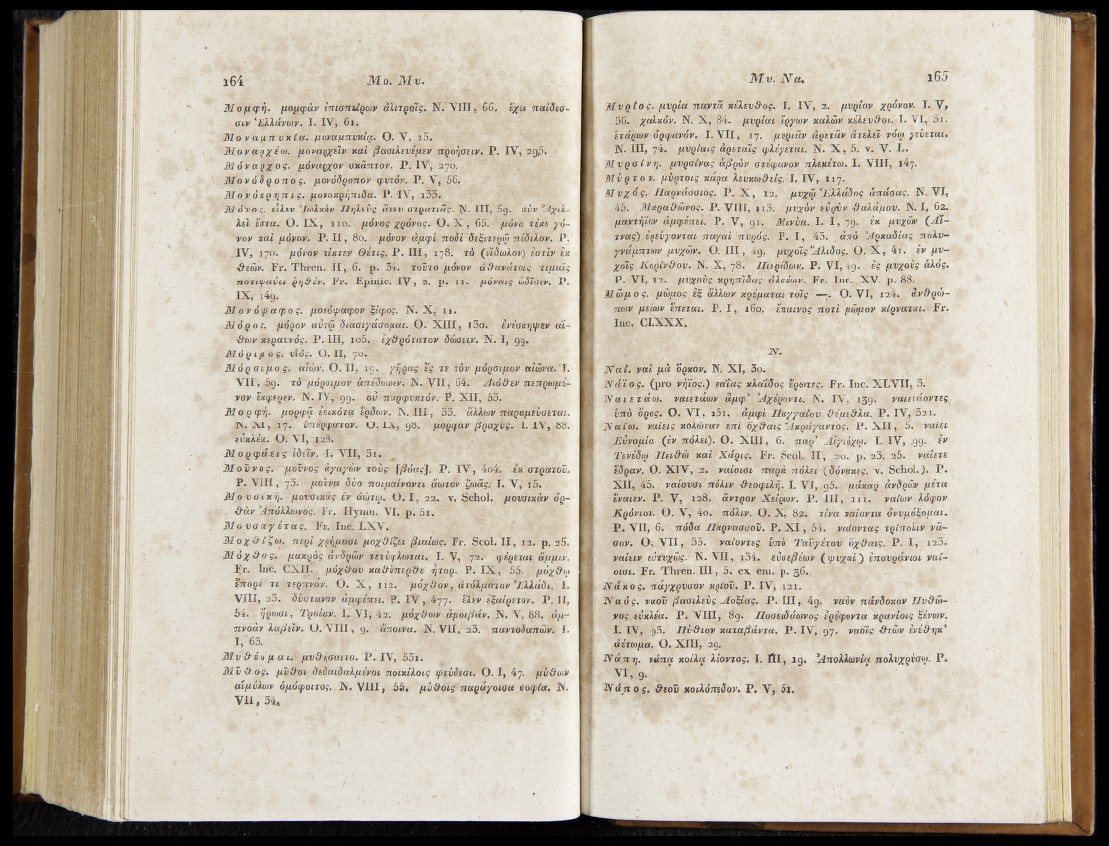 164 Mo. Mv.
Μομφή. μομφὰν ἐπισπείρων ἀλιτροῖς. N. VIII, 66. ἔχει παίδεσ-
σιν Ἑλλάνων. I. IV, 61.
Μοναμπυκία. μοναμπυκίᾳ. O. V, 15.
Μοναρχέω. μοναρχεῖν καὶ βασιλευέμεν προήσειν. P. IV, 295.
Μόναρχος. μόναρχον σκᾶπτον. P. IV, 270.
Μονόδροπος. μονόδροπον φυτόν. P. V, 56.
Μονόκρηπις. μονοκρήπιδα. P. IV, 133.
Μόνος. εἷλεν Ἰωλκὸν Πηλεὺς ἄνευ στρατιᾶς. N. III, 59. σὺν Ἀχιλ-
λεῖ ἔστα. O. IX, 110. μόνος χρόνος. O. X, 65. μόνα τέκε γό-
νον καὶ μόνον. P. II, 80. μόνον ἀμφὶ ποδὶ δεξιτερῷ πέδιλον. P.
IV, 170. μόνον τίκτεν Θέτις. P. III, 178. τὸ (εἴδωλον) ἐστὶν ἐκ
θεῶν. Fr. Thren. II, 6. p. 34. τοῦτο μόνον ἀθανάτοις τιμαῖς
ποτιψαύει ῥηθέν. Fr. Epinic. IV, 2. p. 11. μόναις ὠδῖσιν. P.
IX, 149.
Μονόψαφος. μονόψαφον ξίφος. N. X, 11.
Μόρος. μόρον αὐτῷ διασιγάσομαι. O. XIII, 130. ἐνέσκηψεν αἴ-
θων κεραυνός. P. III, 105. ἐχθρότατον δώσειν. N. I, 99.
Μόριμος. υἱός. O. II, 70.
Μόρσιμος. αἰών. O. II, 19. γῆρας ἔς τε τὸν μόρσιμον αἰῶνα. I.
VII, 59. τὸ μόρσιμον ἀπέδωκεν. N. VII, 64. Διόθεν πεπρωμέ-
νον ἔκφερεν. N. IV, 99. οὐ παρφυκτόν. P. XII, 53.
Μορφή. μορφᾷ ἐοικότα ἔρδων. N. III, 33. ἄλλων παραμεύσεται.
N. XI, 17. ὑπέρφατον. O. IX, 98. μορφὰν βραχύς. I. IV, 88.
εὐκλέα. O. VI, 128.
Μορφάεις ἰδεῖν. I. VII, 31.
Μοῦνος. μοῦνος ἀγαγὼν τοὺς [βόας]. P. IV, 404. ἐκ στρατοῦ.
P. VIII, 73. μοῖνα δύο ποιμαίνοντι ἄωτον ζωᾶς. I. V, 15.
Μουσική. μουσικᾶς ἐν ἀώτῳ. O. I, 22. v. Schol. μουσικὰν ὀρ-
θὰν Ἀπόλλωνος. Fr. Hymn. VI. p. 51.
Μουσαγέτας. Fr. Inc. LXV.
Μοχθίζω. περὶ χρήμασι μοχθίζει βιαίως. Fr. Scol. II, 12. p. 25.
Μόχθος. μακρὸς ἀνδρῶν τετύφλωται. I. V, 72. φέρεται ἄμμιν.
Fr. Inc. CXII. μόχθου καθύπερθε ἦτορ. P. IX, 55. μόχθῳ
ἔπορέ τι τερπνόν. O. X, 112. μόχθον, ἀτόλματον Ἑλλάδι. I.
VIII, 23. δύστανον ἀμφέπει. P. IV, 477. ἕλεν ἐξαίρετον. P. II,
54. ἥρωσι, Τροΐαν. I. VI, 42. μόχθων ἀμοιβάν. N. V, 88. ἀμ-
πνοὰν λαβεῖν. O. VIII, 9. ἄποινα. N. VII, 23. παντοδαπῶν. I.
I, 63.
Μυθέομαι. μυθήσαιτο. P. IV, 531.
Μῦθος. μῦθοι δεδαιδαλμένοι ποικίλοις ψεύδεσι. O. I, 47. μύθων
αἱμύλων ὁμόφοιτος. N. VIII, 55. μύθοις παράγοισα σοφία. N.
VII, 34.
Mv. Να. 165
Μυρίος. μυρία παντᾶ κέλευθος. I. IV, 2. μυρίον χρόνον. I. V,
36. χαλκόν. N. X, 84. μυρίαι ἔργων καλῶν κέλευθοι. I. VI, 31.
ἑτάρων ὀρφανόν. I. VII, 17. μυριᾶν ἀρετᾶν ἀτελεῖ νόῳ γεύεται.
N. III, 74. μυρίαις ἀρεταῖς φλέγεται. N. X, 5. v. V. L.
Μυρσίνη. μυρσίνας ἁβρὸν στέφανον πλεκέτω. I. VIII, 147.
Μύρτον. μύρτοις κάρα λευκωθείς. I. IV, 117.
Μυχός. Παρνάσσιος. P. X, 12. μυχῷ Ἑλλάδος ἁπάσας. N. VI,
45. Μαραθῶνος. P. VIII, 113. μυχὸν εὐρὺν θαλάμου. N. I, 62.
μαντήϊον ἀμφέπει. P. V, 91. Μινύα. I. I, 79. ἐκ μυχῶν (Αἴ-
τνας) ἐρεύγονται παγαὶ πυρός. P. I, 43. ἀπὸ Ἀρκαδίας πολυ-
γνάμπτων μυχῶν. O. III, 49. μυχοῖς Ἄλιδος. O. X, 41. ἐν μυ-
χοῖς Κορίνθου. N. X, 78. Πιερίδων. P. VI, 49. ἐς μυχοὺς ἁλός.
P. VI, 12. μυχοὺς κρηπῖδας ἀλσέων. Fr. Inc. XV. p. 88.
Μῶμος. μῶμος ἐξ ἄλλων κρέμαται τοῖς —. O. VI, 124. ἀνθρώ-
πων μείων ἕπεται. P. I, 160. ἔπαινος ποτὶ μῶμον κίρναται. Fr.
Inc. CLXXX.
N.
Ναί. ναὶ μὰ ὅρκον. N. XI, 30.
Νάϊος. (pro νήϊος.) ναΐας κλαΐδος ἔρωτες. Fr. Inc. XLVII, 3.
Ναιετάω. ναιετάων ἀμφ’ Ἀχέροντι. N. IV, 139. ναιετάοντες
ὑπὸ ὄρος. O. VI, 131. ἀμφὶ Παγγαίου θέμεθλα. P. IV, 321.
Ναίω. ναίεις κολώναν ἐπὶ ὄχθαις Ἀκράγαντος. P. XII, 5. ναίει
Εὐνομία (ἐν πόλει). O. XIII, 6. παρ’ Αἰγιόχῳ. I. IV, 99. ἐν
Τενέδῳ Πειθὼ καὶ Χάρις. Fr. Scol. II, 20. p. 23. 25. ναίετε
ἕδραν. O. XIV, 2. ναίοισι παρὰ πόλει (δόνακες. v. Schol.). P.
XII, 45. ναίουσι πόλιν θεοφιλῆ. I. VI, 95. μάκαρ ἀνδρῶν μέτα
ἔναιεν. P. V, 128. ἄντρον Χείρων. P. III, 111. ναίων λόφον
Κρόνιον. O. V, 40. πόλιν. O. X, 82. τίνα ναίοντα ὀνυμάξομαι.
P. VII, 6. πόδα Παρνασσοῦ. P. XI, 54. ναίοντας τρίπολιν νᾶ-
σον. O. VII, 35. ναίοντες ὑπὸ Ταϋγέτου ὄχθαις. P. I, 123.
ναίειν εὐτυχῶς. N. VII, 134. εὐσεβέων (ψυχαὶ) ἐπουράνιοι ναί-
οισι. Fr. Thren. III, 5. ex em. p. 36.
Νάκος. πάγχρυσον κριοῦ. P. IV, 121.
Ναός. ναοῦ βασιλεὺς Λοξίας. P. III, 49. ναὸν πάνδοκον Πυθῶ-
νος εὐκλέα. P. VIII, 89. Ποσειδάωνος ἐρέφοντα κρανίοις ξένων.
I. IV, 93. Πύθιον καταβάντα. P. IV, 97. ναοῖς θεῶν ἐνέθηκ’
ἀέτωμα. O. XIII, 29.
Νάπη. νάπᾳ κοίλᾳ λέοντος. I. III, 19. Ἀπολλωνίᾳ πολυχρύσῳ. P.
VI, 9.
Νάπος. θεοῦ κοιλόπεδον. P. V, 51.